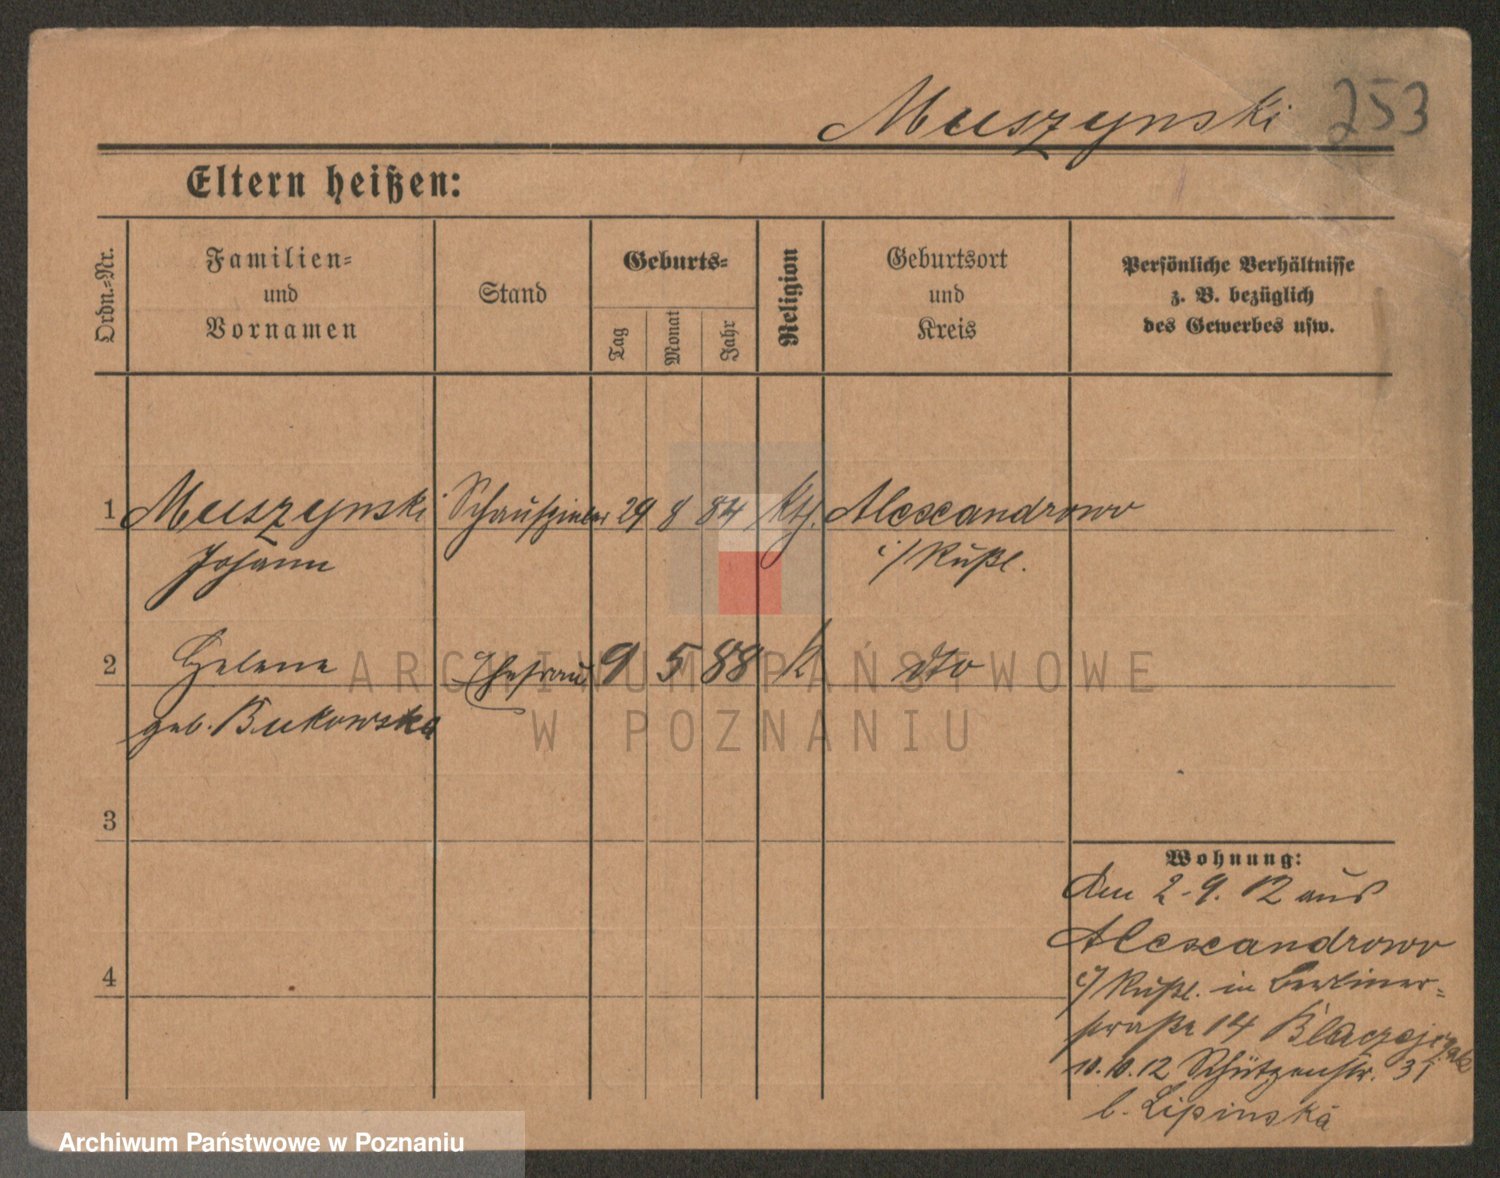 Muszynski 253
Eltern heißen:
Ordn.-Nr.
Familien-
und
Vornamen
Stand
Geburts-
Tag
Monat
Jahr
Religion
Geburtsort
und
Kreis
Persönliche Verhältnisse
z. B. bezüglich
des Gewerbes usw.
1 Muszynski Schauspieler 29 8 84 Kth. Alexandrowo
Johann i/Rußl.
2 Helene Ehefrau 9 5 88 K dto
geb. Bukowska
3
4
Wohnung:
Am 2.9.12 aus
Alexandrowo
i/Rußl. in Berliner-
straße 14
10.10.12 Schützenstr. 31
b. Lipinska
ARCHIWUM PAŃSTWOWE
W POZNANIU
Archiwum Państwowe w Poznaniu